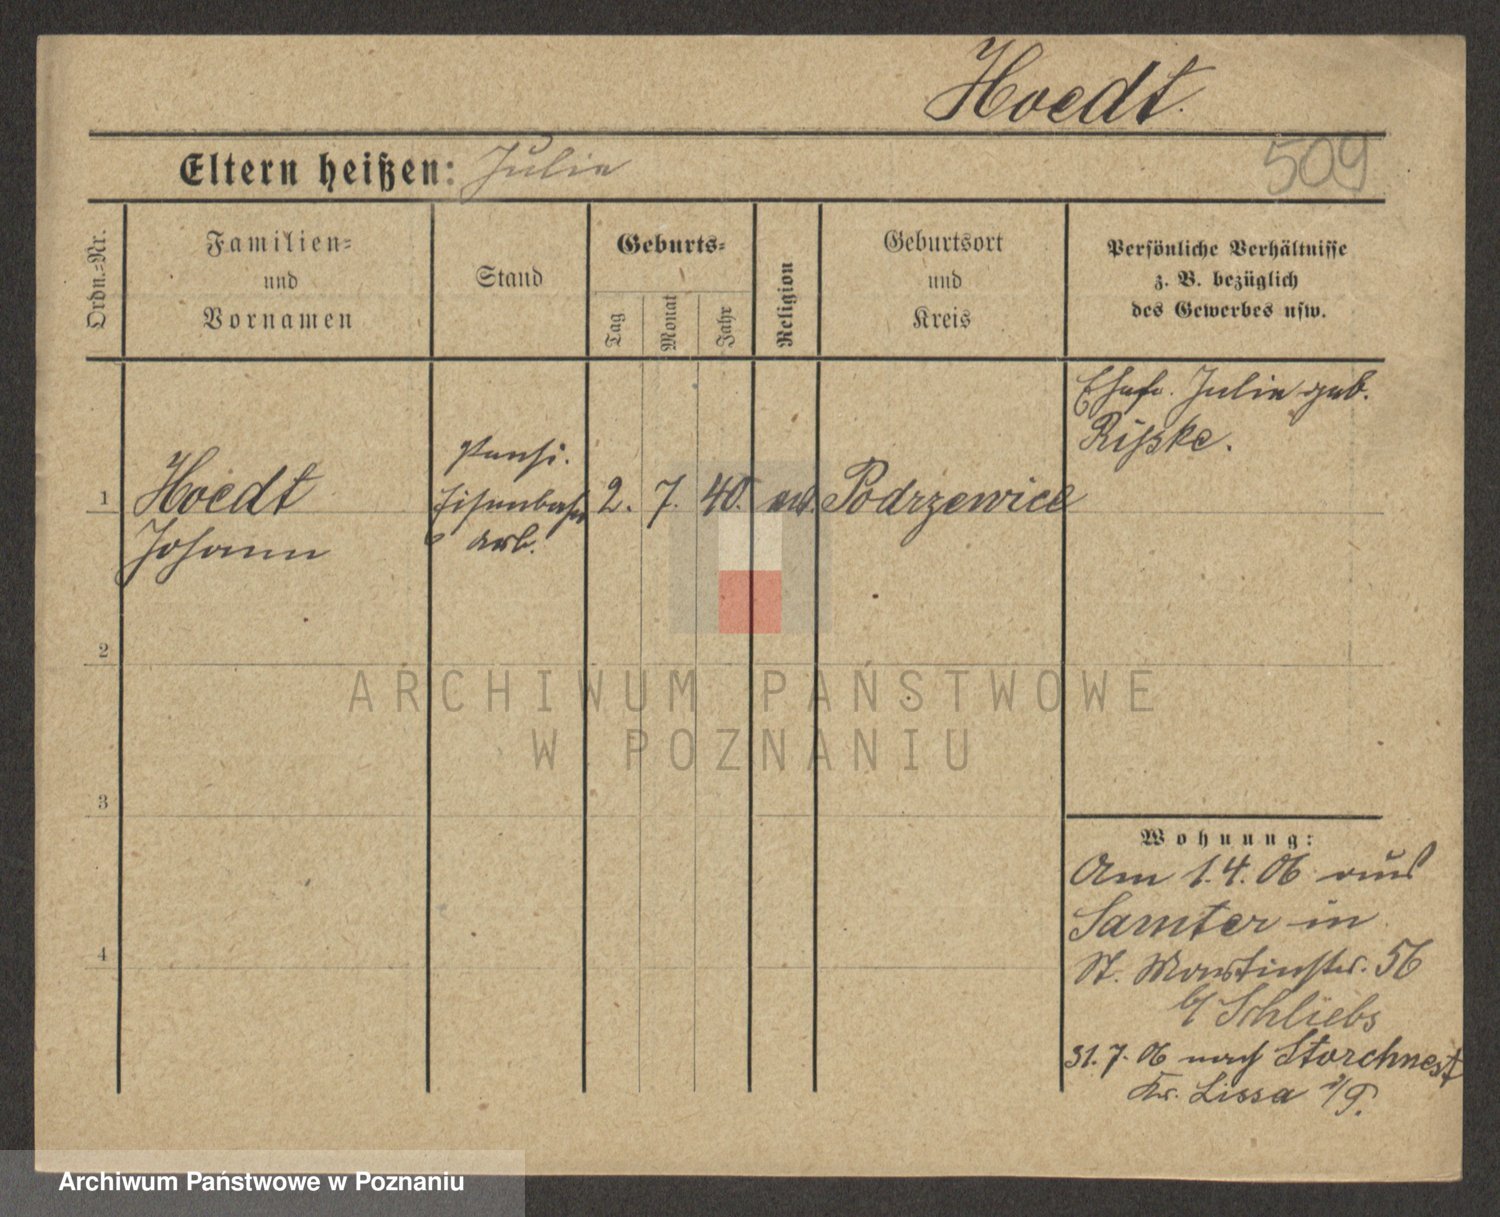 Hoedt.
Eltern heißen: Julie
509
Ordn.=Nr.
Familien=
und
Vornamen
Stand
Geburts=
Tag
Monat
Jahr
Religion
Geburtsort
und
Kreis
Persönliche Verhältnisse
z. B. bezüglich
des Gewerbes usw.
1
Hoedt
Johann
Pensi.
Eisenbahn
Arb.
2. 7. 40. ev. Podrzewice
Ehefr. Julie geb.
Rißke.
2
3
4
Wohnung:
Am 1.4.06 aus
Samter in
St. Martinstr. 56
b/ Schliebs
31.7.06 nach Storchnest
Kr. Lissa i/P.
ARCHIWUM PAŃSTWOWE
W POZNANIU
Archiwum Państwowe w Poznaniu